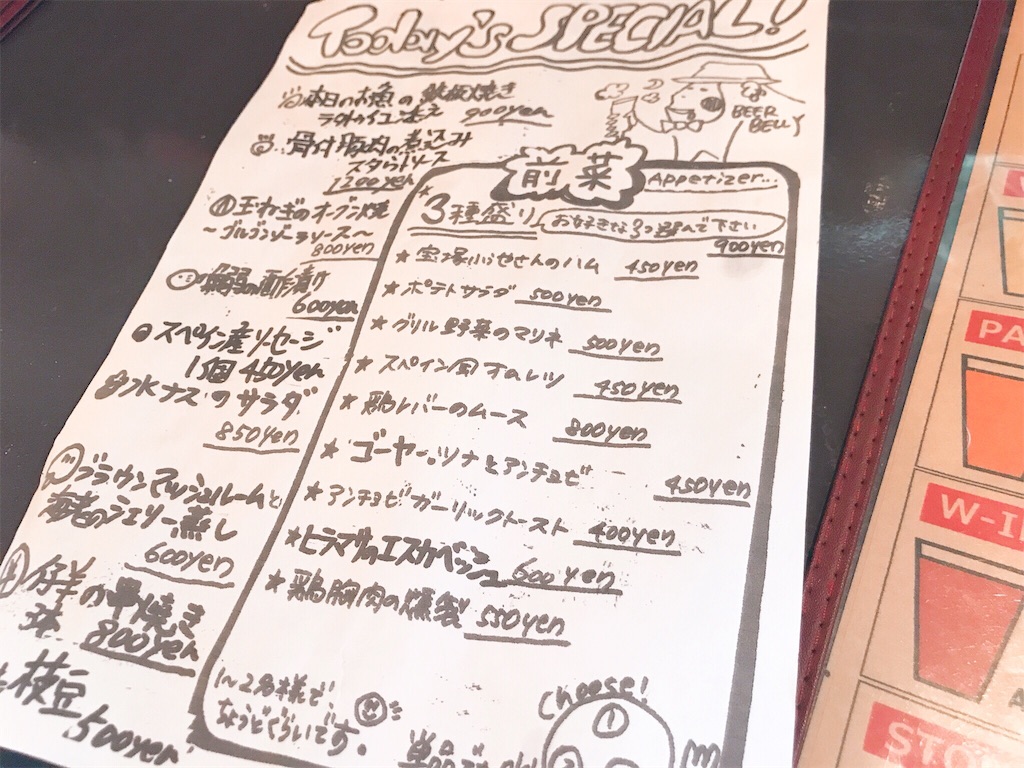 Today's SPECIAL!
本日のお魚の鉄板焼き
900yen
骨付豚肉の煮込み
1200yen
玉ねぎのオーブン焼
～ゴルゴンゾーラソース～
800yen
の酢漬け
600yen
スペイン産ソーセージ
1個 450yen
水ナスのサラダ
850yen
ブラウンマッシュルームと
海老のシェリー蒸し
600yen
仔羊の串焼き
800yen
枝豆
500yen
BEER
BELLY
前菜
Appetizer...
3種盛り お好きな3つ選んで下さい
900yen
★ ハム 450yen
★ ポテトサラダ 500yen
★ グリル野菜のマリネ 500yen
★ スペイン風オムレツ 450yen
★ 鶏レバーのムース 800yen
★ ゴーヤー、ツナとアンチョビ 450yen
★ アンチョビガーリックトースト 400yen
★ ヒラマサのエスカベッシュ 600yen
★ 鶏胸肉の燻製 550yen
1～2名様で
ちょうどぐらいです。
Choose!
①
単品
PA
W-I
STO